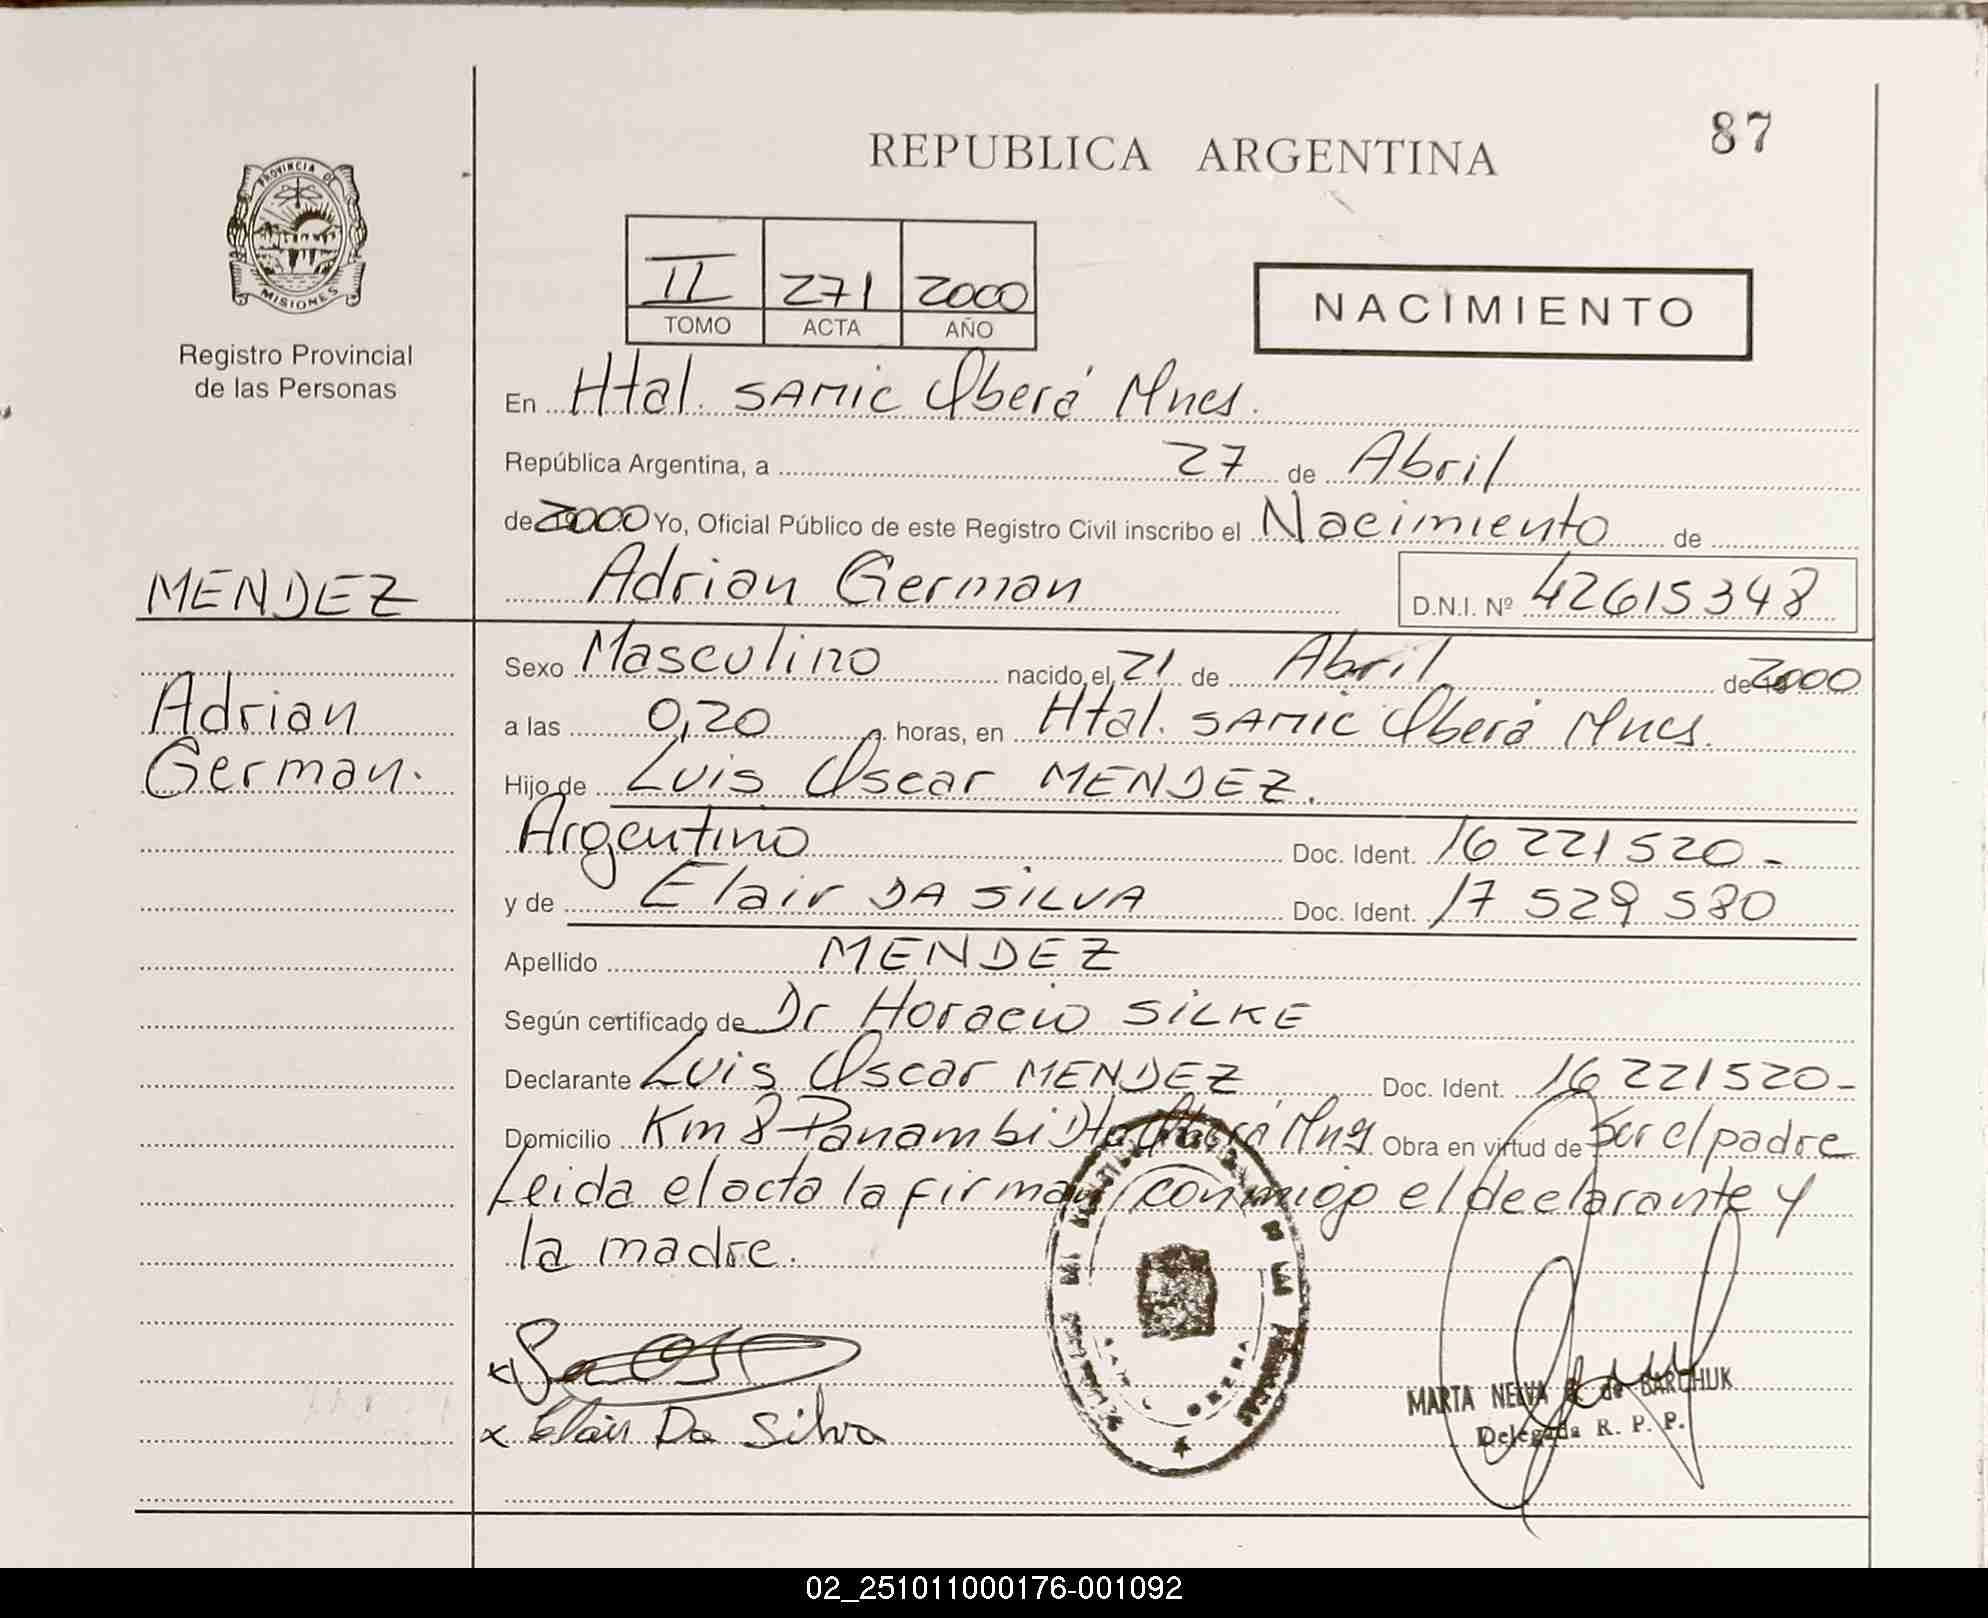 87
REPUBLICA ARGENTINA
PROVINCIA DE
MISIONES
Registro Provincial
de las Personas
II 271 2000
TOMO ACTA AÑO
NACIMIENTO
En Htal. SAMIC Oberá Mnes.
República Argentina, a 27 de Abril
de 2000 Yo, Oficial Público de este Registro Civil inscribo el Nacimiento de
MENDEZ
Adrian German D.N.I. Nº 42615348
Sexo Masculino nacido el 21 de Abril de 2000
Adrian
German.
a las 0,20 horas, en Htal. SAMIC Oberá Mnes.
Hijo de Luis Oscar MENDEZ.
Argentino Doc. Ident. 16 221 520-
y de Elair DA SILVA Doc. Ident. 17 529 580
Apellido MENDEZ
Según certificado de Dr Horacio SILKE
Declarante Luis Oscar MENDEZ Doc. Ident. 16 221520-
Domicilio Km 8 Panambi Oberá Mnes Obra en virtud de ser el padre
Leida el acta la firman conmigo el declarante y
la madre.
x Elair Da Silva
MARTA NELVA de BARCHUK
Delegada R. P. P.
02_251011000176-001092